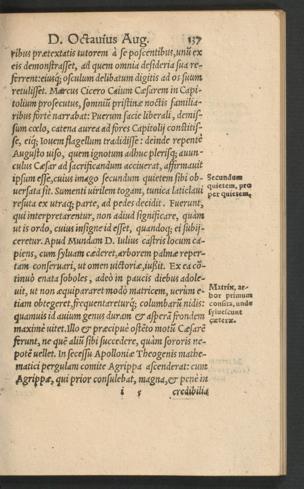 D. Octauius Aug. 137
ribus prætextatis tutorem à se poscentibus, unũ ex
eis demonstrasset, ad quem omnia desideria sua re-
ferrent: eiusq; osculum delibatum digitis ad os suum
retulisset. Marcus Cicero Caium Cæsarem in Capi-
tolium prosecutus, somniũ pristinæ noctis familia-
ribus fortè narrabat: Puerum facie liberali, demis-
sum cœlo, catena aurea ad fores Capitolij constitis-
se, eiq; Iouem flagellum tradidisse: deinde repentè
Augusto uiso, quem ignotum adhuc plerisq; auun-
culus Cæsar ad sacrificandum acciuerat, affirmauit
ipsum esse, cuius imago secundum quietem sibi ob-
Secundum
quietem, pro
per quietem.
uersata sit. Sumenti uirilem togam, tunica laticlaui
resuta ex utraq; parte, ad pedes decidit. Fuerunt,
qui interpretarentur, non aliud significare, quàm
ut is ordo, cuius insigne id esset, quandoq; ei subij-
ceretur. Apud Mundam D. Iulius castris locum ca-
piens, cum syluam cæderet, arborem palmæ reper-
tam conseruari, ut omen uictoriæ, iussit. Ex ea cõ-
tinuò enata soboles, adeò in paucis diebus adole-
uit, ut non æquipararet modò matricem, uerùm e-
Matrix, ar-
bor primum
consita, unde
syluescunt
cæteræ.
tiam obtegeret, frequentareturq; columbarũ nidis:
quamuis id auium genus duram & asperã frondem
maximè uitet. Illo & præcipuè ostẽto motũ Cæsarẽ
ferunt, ne quẽ aliũ sibi succedere, quàm sororis ne-
potẽ uellet. In secessu Apolloniæ Theogenis mathe-
matici pergulam comite Agrippa ascenderat: cum
Agrippæ, qui prior consulebat, magna, & penè in
i 5 credibilia